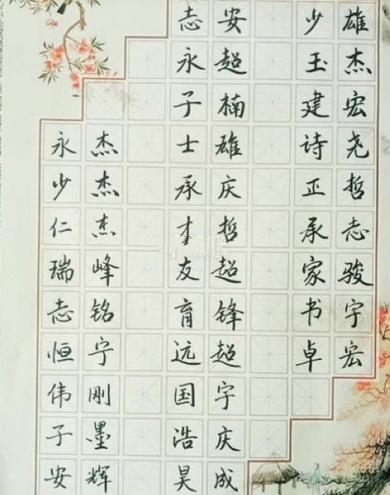 志安 少雄
永超 玉杰
子楠 建宏
永杰 士雄 诗尧
少杰 承庆 正哲
仁杰 才哲 承志
瑞峰 友超 家骏
志铭 育锋 书宇
恒宁 远超 卓宏
伟刚 国宇
子墨 浩庆
安辉 昊成